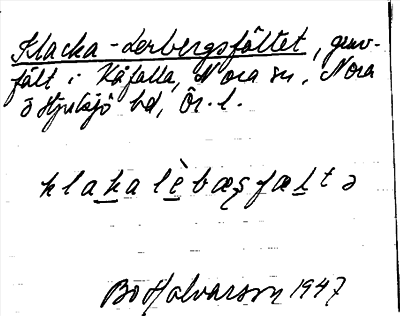 Klacka-Lerbergsfältet, gruv-
fält i Kåfalla, Nora sn, Nora
o Hjulsjö bd, Ör. l.
klakalèbæs̨fæltə
Bo Halvarson 1947